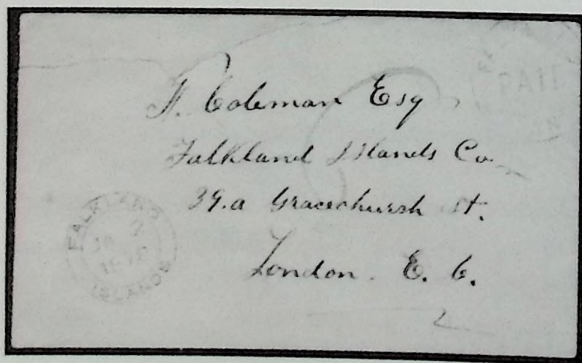 F. Coleman Esq
Falkland Islands Co
39.a Gracechurch St.
London. E. C.
FALKLAND
ISLANDS